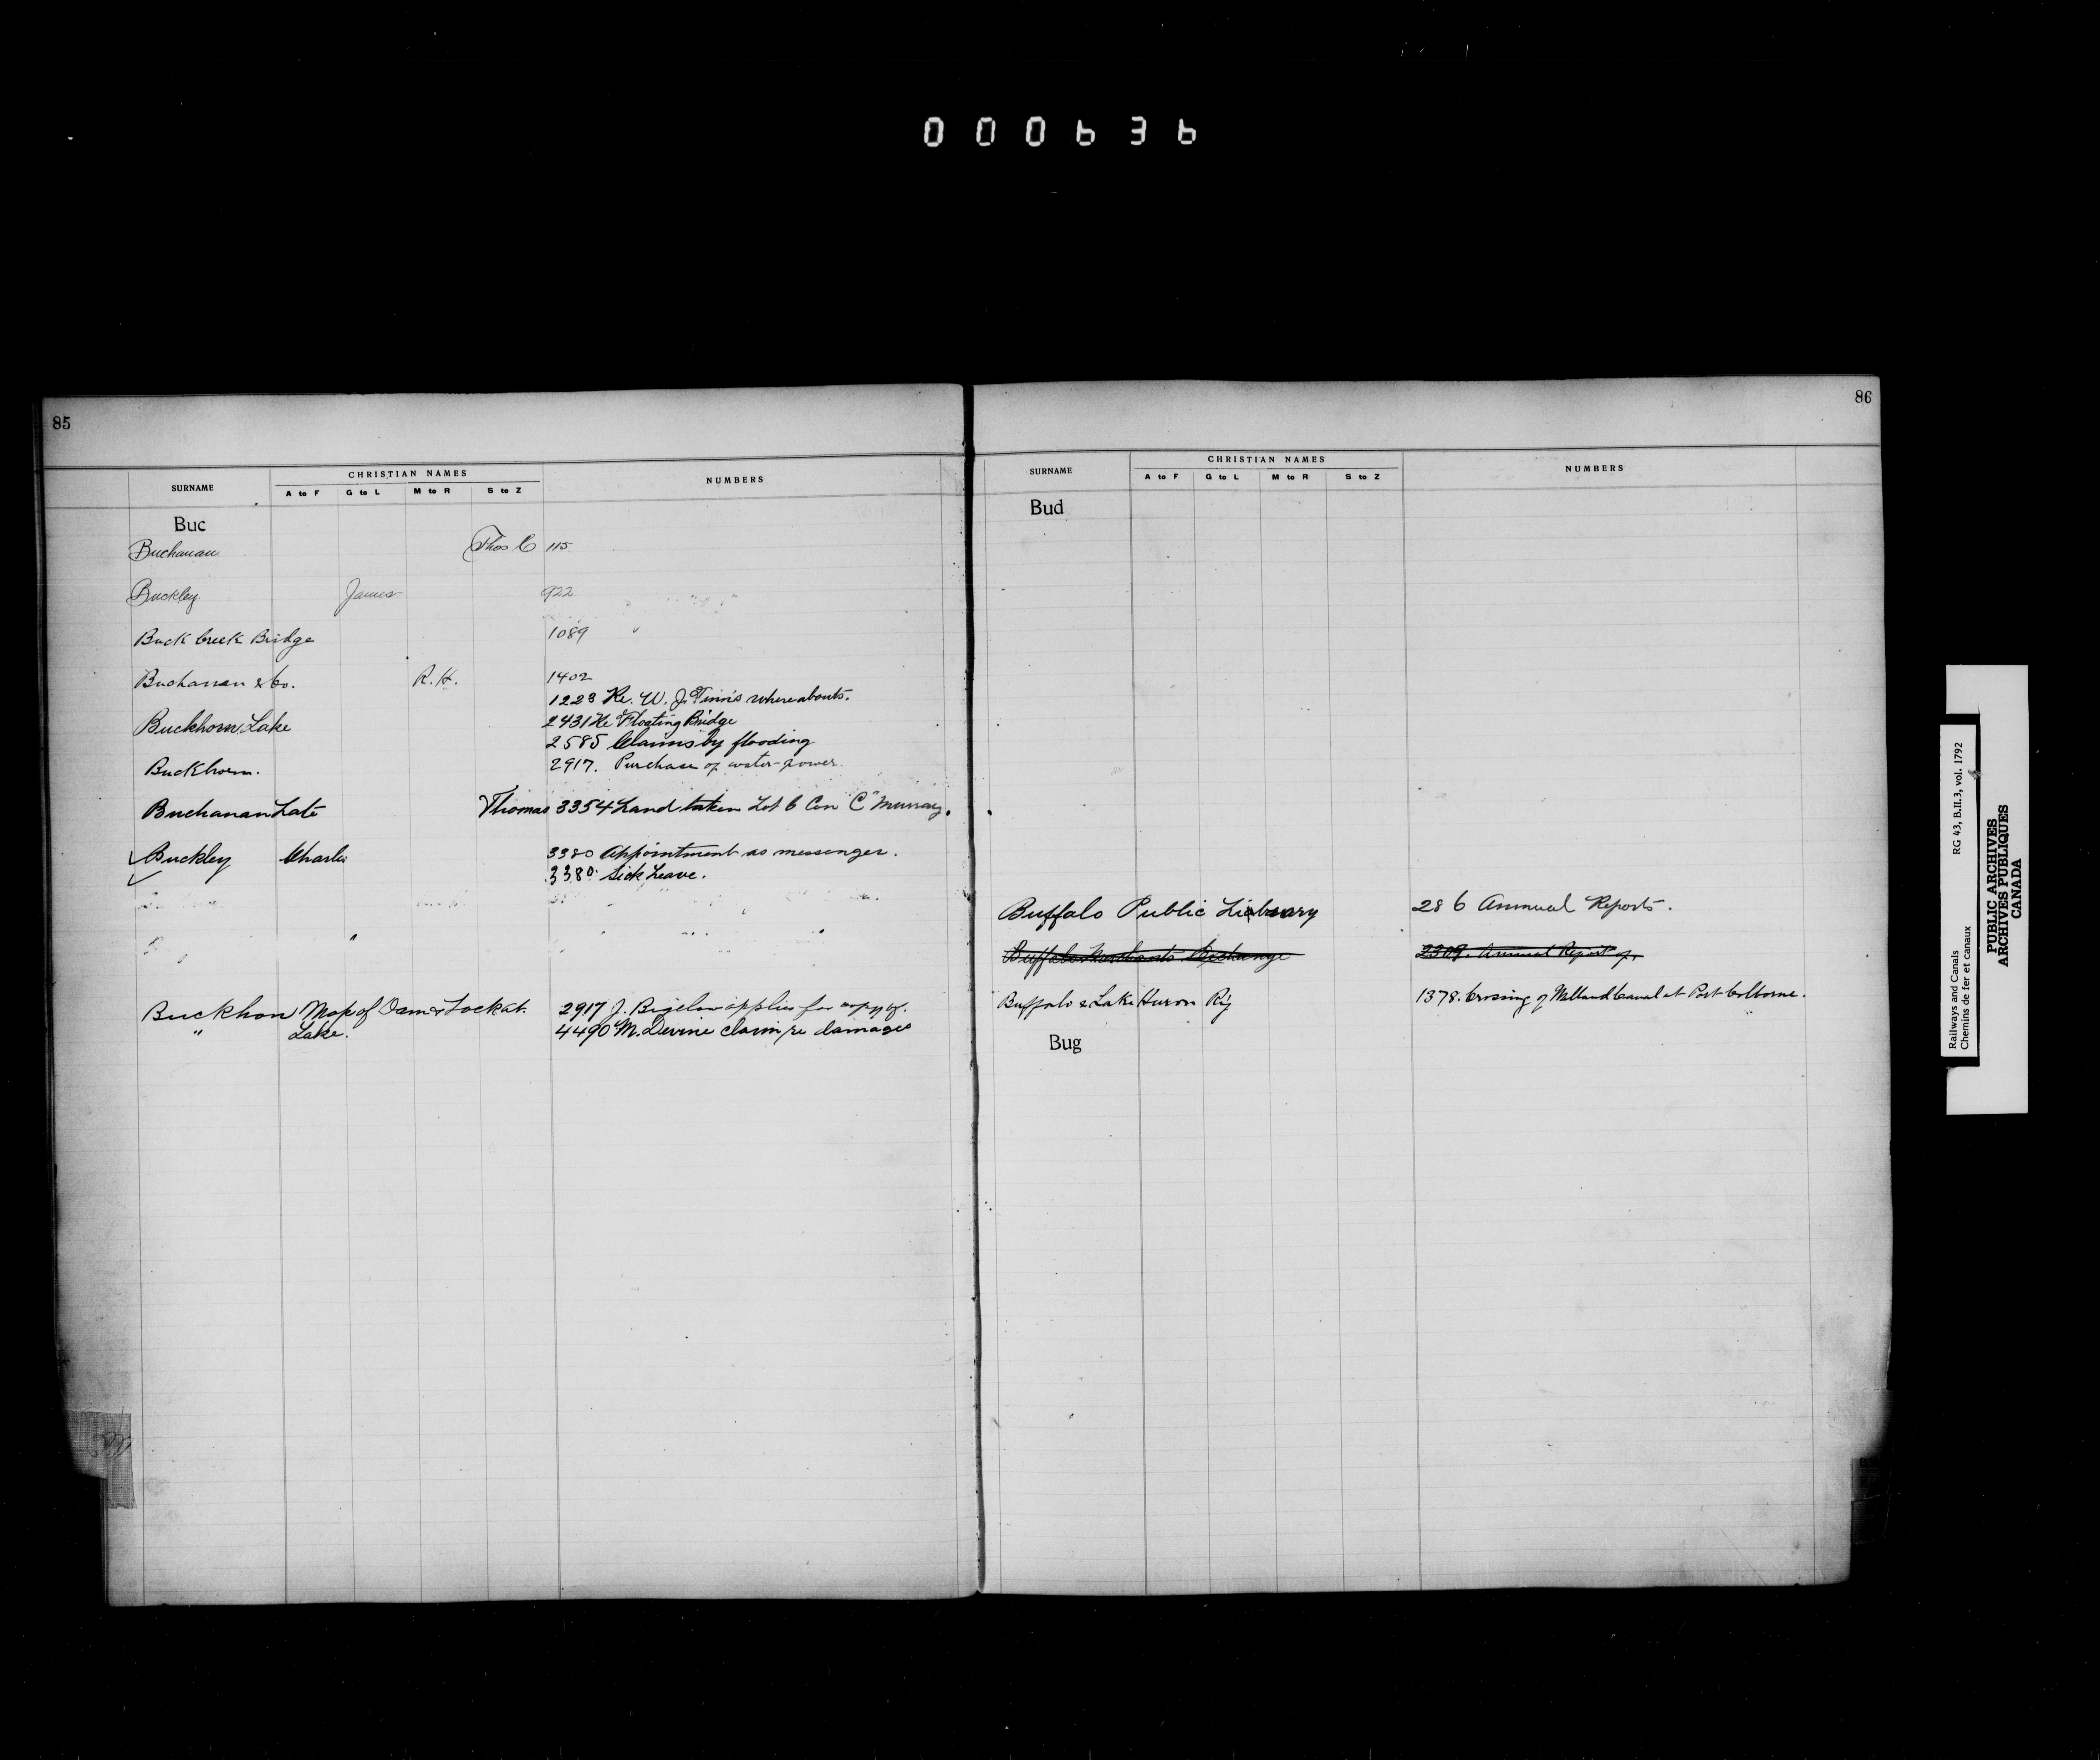 000636
85
SURNAME CHRISTIAN NAMES NUMBERS
A to F G to L M to R S to Z
Buc
Buchanan Thos C 115
Buckley James 922
Buck Creek Bridge 1089
Buchanan & Co. R.H. 1402
1223 Re. W. J. whereabouts.
Buckhorn Lake 2431 Re Floating Bridge
2585 Claims by flooding
Buckhorn. 2917. Purchase of water-power.
Buchanan Late Thomas 3354 Land taken Lot 6 Con "C" Murray.
Buckley Charles 3380 Appointment as messenger.
3380 Sick Leave.
Buckhon Map of Dam & Lock at. 2917 J. Bigelow applies for copy of.
" Lake. 4490 M. Devine claim re damages
86
SURNAME CHRISTIAN NAMES NUMBERS
A to F G to L M to R S to Z
Bud
Buffalo Public Library 286 Annual Reports.
Buffalo Merchants Exchange 2309. Annual Report of.
Buffalo & Lake Huron Ry 1378. Crossing of Welland Canal at Port Colborne.
Bug
Railways and Canals RG 43, B.II.3, vol. 1792
Chemins de fer et canaux
PUBLIC ARCHIVES
ARCHIVES PUBLIQUES
CANADA